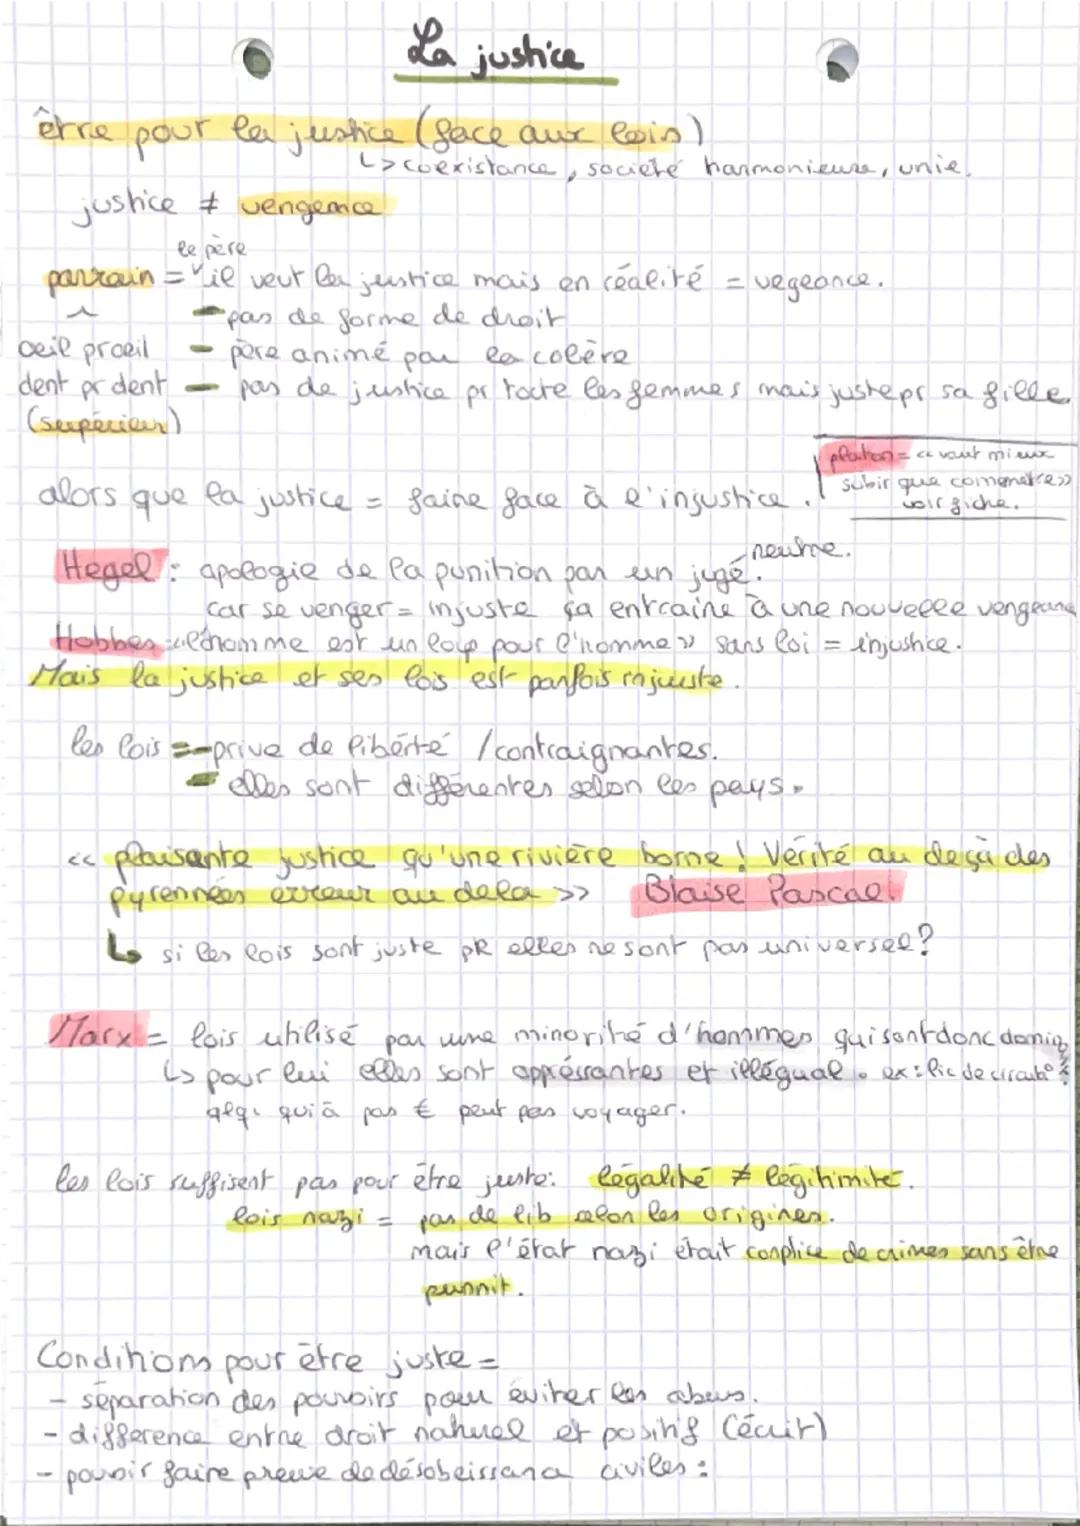 La justice
être pour la justice (face aux lois)
↳ coexistance, société harmonieuse, unie.
justice ≠ vengeance
le père
parrain = il veut la justice mais en réalité = vegeance.
- pas de forme de droit
oeil proeil - père animé par la colère
dent pr dent - pas de justice pr toute les femmes mais juste pr sa fille.
(supérieur)
platon = << vaut mieux
subir que comemetre >>
voir fiche.
alors que la justice = faire face à l'injustice.
neutre.
Hegel : apologie de la punition par un jugé.
car se venger = injuste ça entraine à une nouvelle vengeance
Hobbes : << l'homme est un loup pour l'homme >> sans loi = injustice.
Mais la justice et ses lois est parfois injuste.
les lois = - prive de liberté / contraignantes.
- elles sont différentes selon les pays.
<< plaisante justice qu'une rivière borne ! Vérité au deçà des
pyrennées erreur au dela >> Blaise Pascal.
↳ si les lois sont juste pk elles ne sont pas universel ?
Marx = lois utilisé par une minorité d'hommes qui sont donc
↳ pour lui elles sont oppréssantes et illégual. ex :
qlq. qui à pas € peut pas voyager.
les lois suffisent pas pour être juste : légalité ≠ légitimité.
lois nazi = pas de lib selon les origines.
mais l'état nazi était complice de crimes sans être
punnit.
Conditions pour être juste =
- séparation des pouvoirs pour éviter les abus.
- difference entre droit naturel et positif (écrit)
- pouvoir faire preuve de désobeissance civiles :